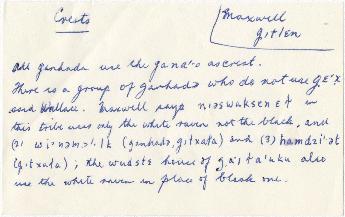 Crests
Maxwell
g.it'l.En
all ganhada use the gana'o as crest.
There is a group of ganhadə who do not use g.E'x
said Wallace. Maxwell says niəswuksenEt in
this tribe uses only the white raven not the black, and
(2) wi'nəmɔ'lk (ganhada, gitxała) and (3) hamdzi'ət
(gitxała); the wudstə house of ga'it'a'uku also
use the white raven in place of black one.